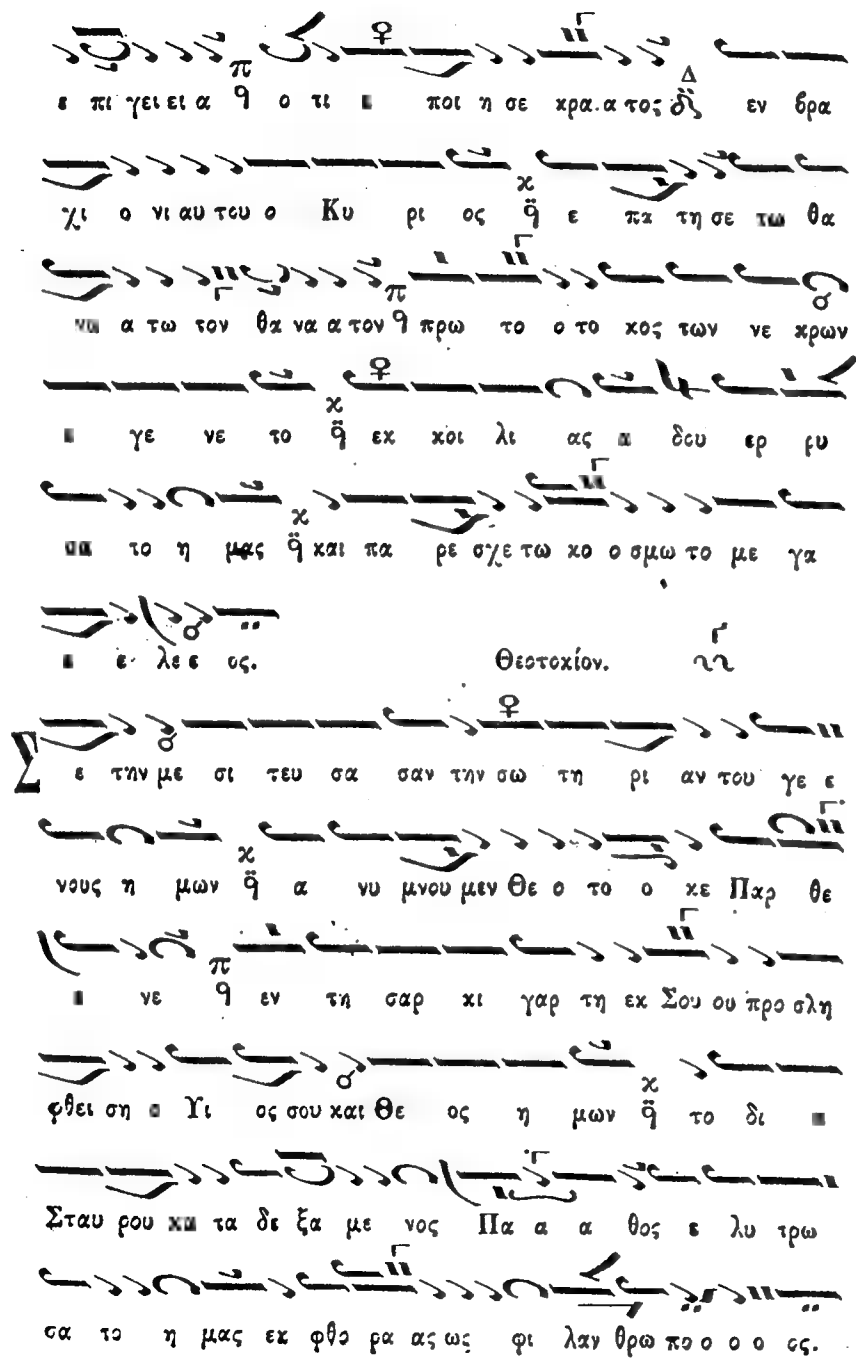 ε πι γει ει α ο τι ποι η σε κρα.α τος εν βρα
χι ο νι αυ του ο Κυ ρι ος ε πα τη σε τω θα
να α τω τον θα να α τον πρω το ο το κος των νε κρων
γε νε το εκ κοι λι ας δου ερ ρυ
σα το η μας και πα ρε σχε τω κο ο σμω το με γα
ε λε ε ος. Θεοτοκίον.
Σ ε την με σι τευ σα σαν την σω τη ρι αν του γε ε
νους η μων α νυ μνου μεν Θε ο το ο κε Παρ θε
νε εν τη σαρ κι γαρ τη εκ Σου ου προ σλη
φθει ση Υι ος σου και Θε ος η μων το δι
Σταυ ρου κα τα δε ξα με νος Πα α α θος ε λυ τρω
σα το η μας εκ φθο ρα ας ως φι λαν θρω πο ο ο ο ος.